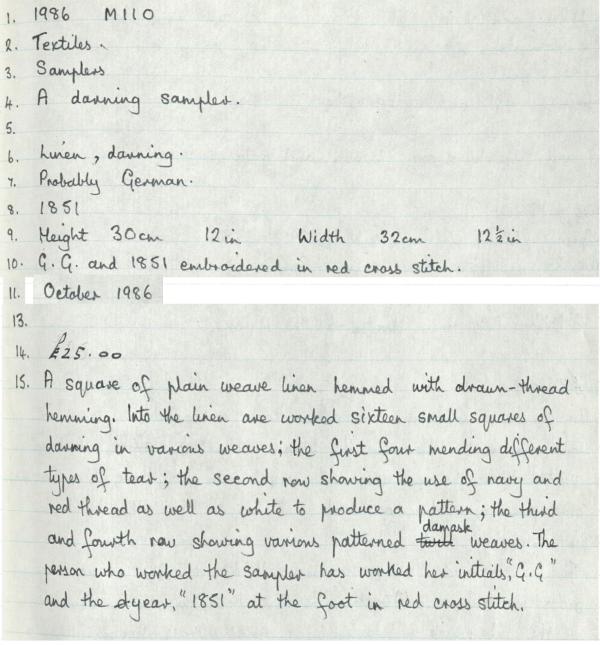 1. 1986 M110
2. Textiles.
3. Samplers
4. A darning sampler.
5.
6. Linen, darning.
7. Probably German.
8. 1851
9. Height 30cm 12in Width 32cm 12½in
10. G.G. and 1851 embroidered in red cross stitch.
11. October 1986
13.
14. £25.00
15. A square of plain weave linen hemmed with drawn-thread
hemming. Into the linen are worked sixteen small squares of
darning in various weaves; the first four mending different
types of tear; the second row showing the use of navy and
red thread as well as white to produce a pattern; the third
and fourth row showing various patterned damask weaves. The
person who worked the sampler has worked her initials, "G.G"
and the year, "1851" at the foot in red cross stitch.